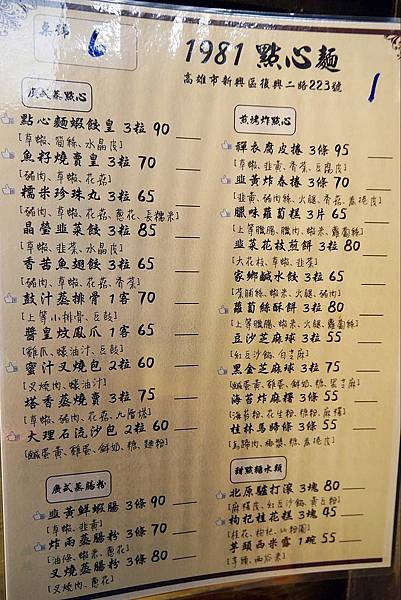 桌號 6
1981 點心麵
高雄市新興區復興二路223號
1
廣式蒸點心
點心麵蝦餃皇 3粒 90
[草蝦、筍絲、水晶皮]
魚籽燒賣皇 3粒 70
[豬肉、草蝦、花菇]
糯米珍珠丸 3粒 65
[豬肉、草蝦、花菇、蔥花、長糯米]
晶瑩韭菜餃 3粒 85
[草蝦、韭菜、水晶皮]
香茜魚翅餃 3粒 65
[豬肉、草蝦、花菇、香菜]
鼓汁蒸排骨 1客 70
[上等小排骨、豆鼓]
醬皇炆鳳爪 1客 65
[雞爪、蠔油汁、豆鼓]
蜜汁叉燒包 2粒 60
[叉燒肉、蠔油汁]
塔香蒸燒賣 3粒 75
[草蝦、豬肉、花菇、九層塔]
大理石流沙包 2粒 60
[鹹蛋黃、雞蛋、鮮奶、糖、麵粉]
廣式蒸腸粉
韭黃鮮蝦腸 3條 90
[草蝦、韭黃]
炸兩蒸腸粉 3條 70
[油條、蝦米、蔥花]
叉燒蒸腸粉 3條 80
[叉燒肉、蔥花]
煎烤炸點心
禪衣腐皮捲 3條 95
[草蝦、韭黃、香菜、豆腐皮]
韭黃炸春捲 3條 70
[韭黃、豬肉絲、火腿、香菇、春捲皮]
臘味蘿蔔糕 3片 65
[上等臘腸、臘肉、蝦米、蘿蔔絲]
韭菜花枝煎餅 3粒 80
[大花枝、草蝦、韭菜]
家鄉鹹水餃 3粒 65
[菜脯絲、蝦米、火腿、豬肉]
蘿蔔絲酥餅 3粒 80
[上等臘腸、蝦米、火腿、蘿蔔絲]
豆沙芝麻球 3粒 55
[紅豆沙餡、白芝麻]
黑金芝麻球 3粒 75
[鹹蛋黃、雞蛋、鮮奶、糖、黑芝麻]
海苔炸麻糬 3條 55
[海苔粉、花生粉、糖粉、麻糬]
桂林馬蹄條 3條 55
[馬蹄肉、椰漿、糖、春捲皮]
甜點糖水類
北原驢打滾 3塊 80
[麻糬皮、紅豆沙餡、黃豆粉]
枸杞桂花糕 3塊 45
[桂花、枸杞、山粉圓]
芋頭西米露 1碗 55
[芋頭、西谷米]